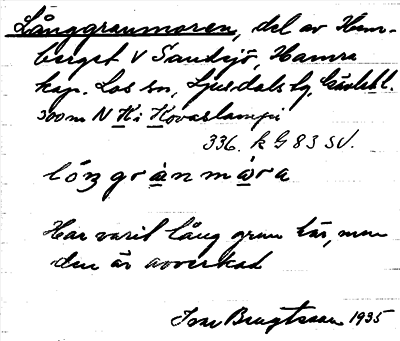 Långgranmoren, del av Hem-
berget V Sandsjö, Hamra
kap. Los sn, Ljusdals tg. Gävlebl.
300m N K i Kovaslampi
336. k G 83 SV.
lóŋgrànmòra
Har varit lång gran här, men
den är avverkad
Ivar Bengtsson 1935